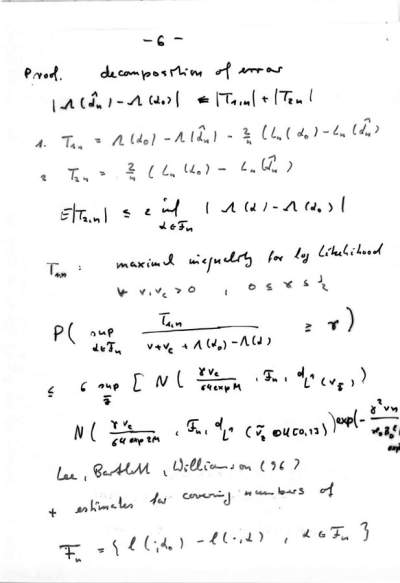 - 6 -
Proof. decomposition of error
|Λ(α̂_n) - Λ(α_0)| ≤ |T_{1,n}| + |T_{2n}|
1. T_{1n} = Λ(α_0) - Λ(α̂_n) - 2/n (L_n(α_0) - L_n(α̂_n))
2. T_{2n} = 2/n (L_n(α_0) - L_n(α̂_n))
E|T_{2,n}| ≤ 2 inf_{α∈F_n} |Λ(α) - Λ(α_0)|
T_{1,n} : maximal inequality for log likelihood
∀ v, v_c > 0 , 0 ≤ γ ≤ 1/2
P( sup_{α∈F_n} T_{1,n} / (v + v_c + Λ(α_0) - Λ(α)) ≥ γ )
≤ 6 sup [ N( γ v_c / 64 exp M , F_n, d_{L^1}(v_z̄) )
N( γ v_c / 64 exp 2M , F_n, d_{L^1} ( ⊗ U[0,1]) ) exp(- γ² v n
Lee, Bartlett, Williamson (96)
+ estimates for covering numbers of
F_n = { l(·,α_0) - l(·,α) , α ∈ F_n }